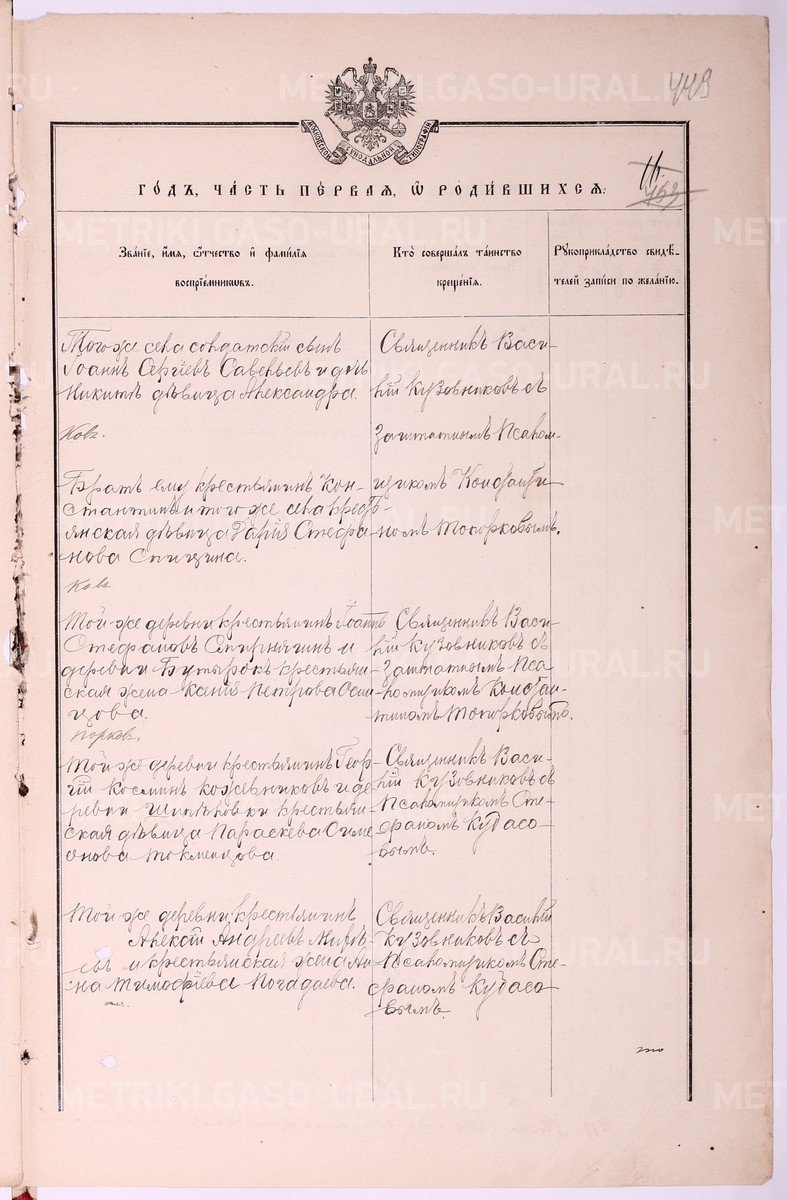 449
МОСКОВСКОЙ СѴНОДАЛЬНОЙ ТИПОГРАФІИ
163
ГОДЪ, ЧАСТЬ ПЕРВАЯ, Ѡ РОДИВШИХСЯ:
Званіе, имя, ѻтчество и фамилія
воспріемниковъ.
Кто совершалъ таинство
крещенія.
Рукоприкладство свидѣ-
телей записи по желанію.
Того же села солдатскій сынъ
Іоаннъ Сергіевъ Савельевъ и дочь
Никиты дѣвица Александра.
Священникъ Васи-
лій Кузовниковъ съ
Заштатнымъ Псалом-
щикомъ Константи-
номъ Топорковымъ.
Братъ ему крестьянинъ Кон-
стантинъ и того же села крест-
янская дѣвица Дарія Стефа-
нова Спицина.
Той же деревни крестьянинъ Іоаннъ
Стефановъ и
деревни Бутырокъ крестьян-
ская жена Ксенія Петрова
Священникъ Васи-
лій Кузовниковъ съ
Заштатнымъ Пса-
ломщикомъ Констан-
тиномъ Топорковымъ.
Той же деревни крестьянинъ Геор-
гій Косминъ Кожевниковъ и де-
ревни Шипѣловки крестьян-
ская дѣвица Параскева Симе-
онова Токманцова.
Священникъ Васи-
лій Кузовниковъ съ
Псаломщикомъ Сте-
фаномъ Кудасо-
вымъ.
Той же деревни крестьянинъ
Алексій Андреевъ
и крестьянская жена Ан-
на Тимофіева Погадаева.
Священникъ Василій
Кузовниковъ съ
Псаломщикомъ Сте-
фаномъ Кудасо-
вымъ.
METRIKI.GASO-URAL.RU